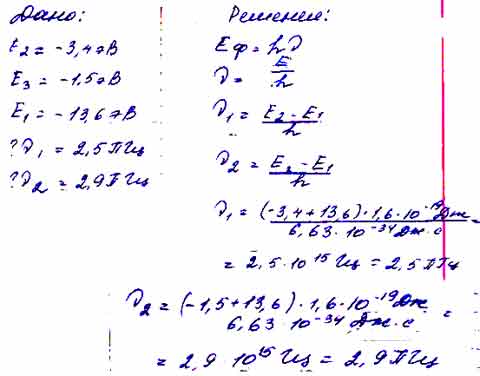 Дано:
E₂ = -3,4 эВ
E₃ = -1,5 эВ
E₁ = -13,6 эВ
?ν₁ = 2,5 ПГц
?ν₂ = 2,9 ПГц
Решение:
Eф = hν
ν = E/h
ν₁ = (E₂ - E₁)/h
ν₂ = (E₃ - E₁)/h
ν₁ = (-3,4 + 13,6) · 1,6 · 10⁻¹⁹ Дж / 6,63 · 10⁻³⁴ Дж · с =
= 2,5 · 10¹⁵ Гц = 2,5 ПГц
ν₂ = (-1,5 + 13,6) · 1,6 · 10⁻¹⁹ Дж / 6,63 · 10⁻³⁴ Дж · с =
= 2,9 · 10¹⁵ Гц = 2,9 ПГц